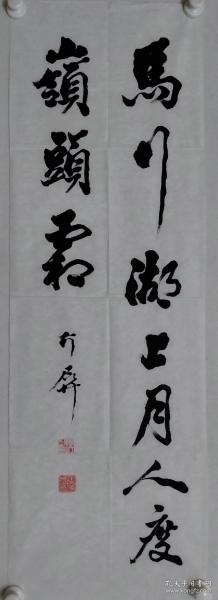 馬行湖上月人度
嶺頭霜
行屏
孔夫子旧书网